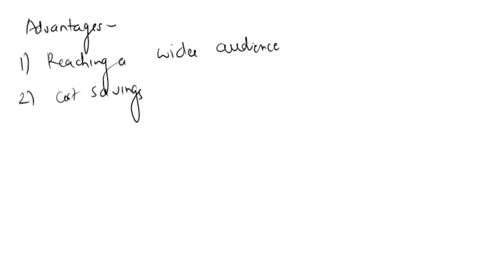 Advantages-
1) Reaching a wider audience
2) Cost savings